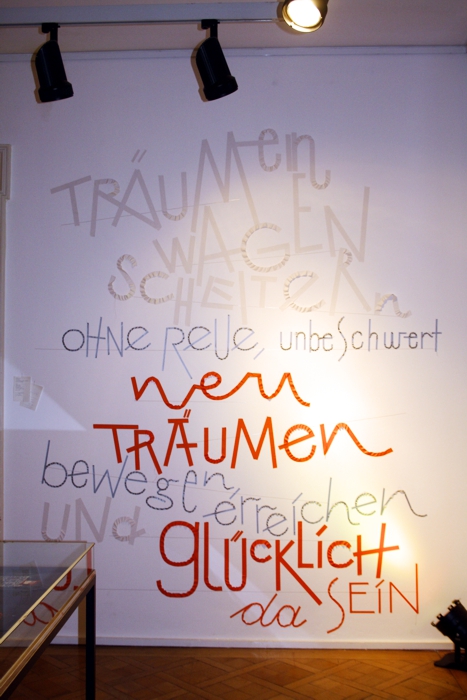 TRÄUMen
WAGEN
SCHEITERn
OHNE REUE, unbeSchwert
neu
TRÄUMEn
bewegen
erreichen
UNd
GLÜCKLicH
da SEiN